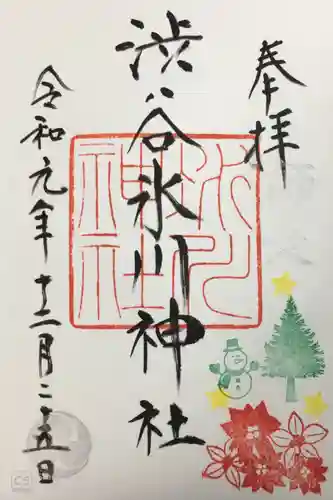 奉拝
渋谷氷川神社
令和元年十二月二十五日
氷川
神社